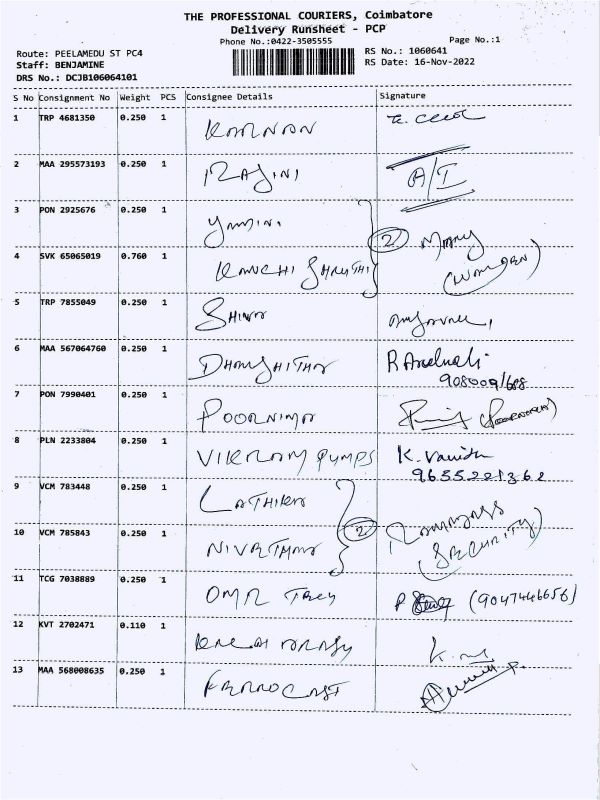 THE PROFESSIONAL COURIERS, Coimbatore
Delivery Runsheet - PCP
Phone No.:0422-3505555
Page No.:1
Route: PEELAMEDU ST PC4
RS No.: 1060641
Staff: BENJAMINE
RS Date: 16-Nov-2022
DRS No.: DCJB106064101
S No Consignment No Weight PCS Consignee Details Signature
1 TRP 4681350 0.250 1 KANNAN
2 MAA 295573193 0.250 1 RAJINI A/I
3 PON 2925676 0.250 1 YAMINI
2 MARY
4 SVK 65065019 0.760 1 KANCHI SHRUTHI (WARDEN)
5 TRP 7855049 0.250 1 SHIVA
6 MAA 567064760 0.250 1 DHARSHITHA
7 PON 7990401 0.250 1 POORNIMA (POORNIMA)
8 PLN 2233804 0.250 1 VIKRAM PUMPS K.
9655221362
9 VCM 783448 0.250 1 LATHIKA
2
10 VCM 785843 0.250 1 NIVETHA (SECURITY)
11 TCG 7038889 0.250 1 OMR P (9047446656)
12 KVT 2702471 0.110 1 K.
13 MAA 568008635 0.250 1 FERROCAST